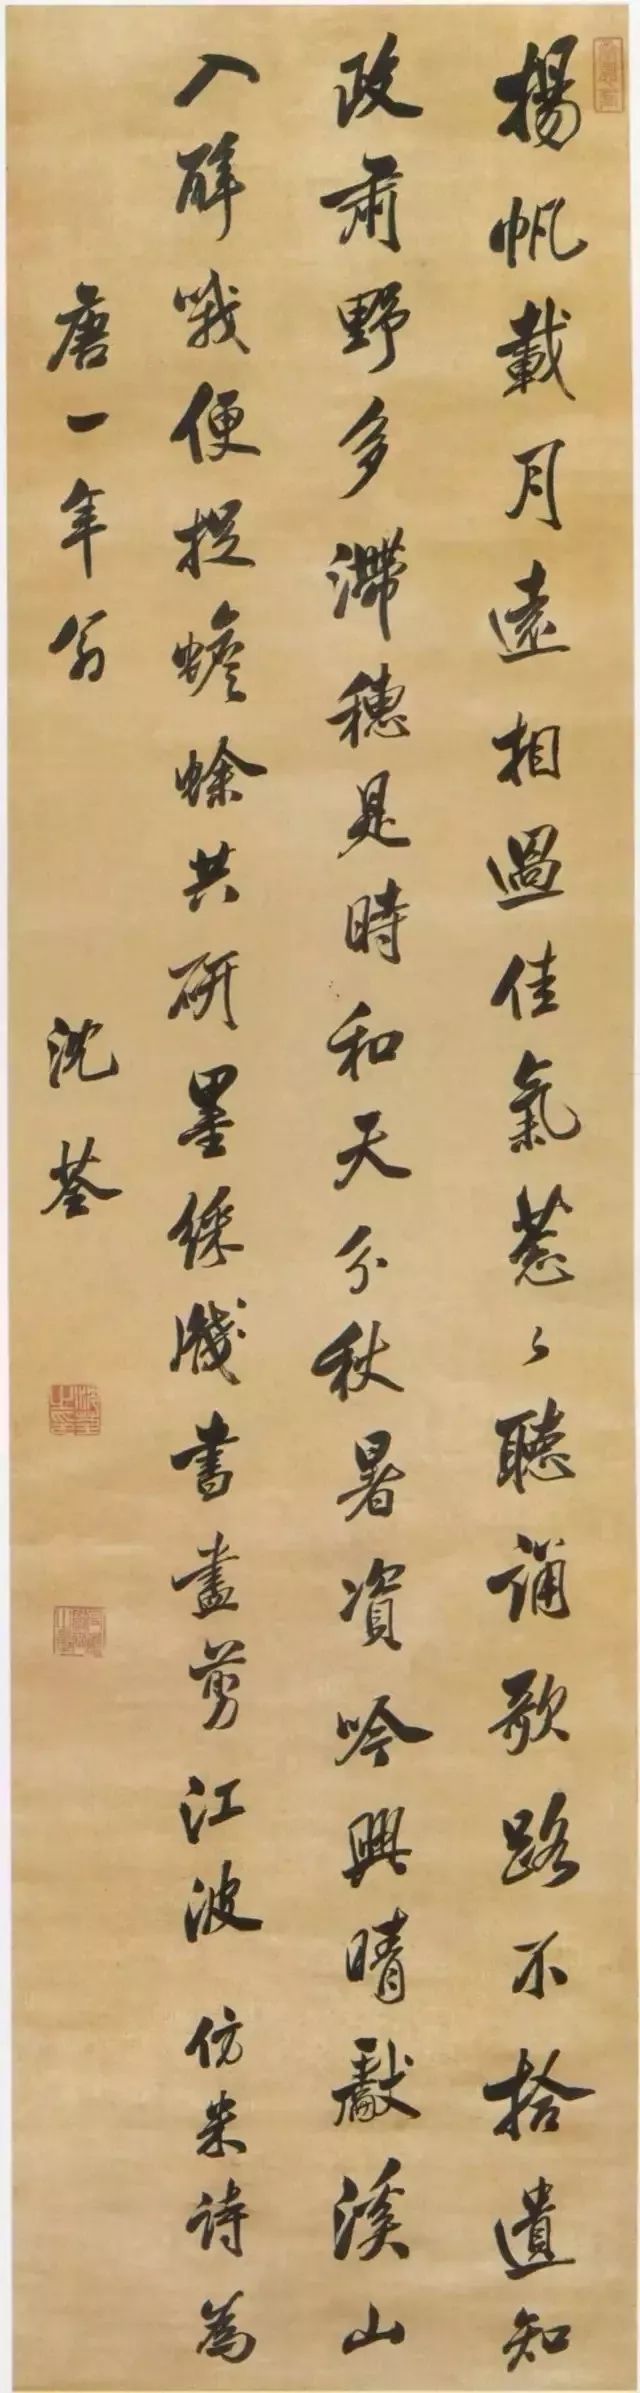 揚帆載月遠相過佳氣葱々聽誦歌路不拾遺知
政肅野多滯穗是時和天分秋暑資吟興晴獻溪山
入醉哦便捉蟾蜍共研墨綵牋書盡剪江波 仿米詩為
唐一年翁 沈荃
沈荃之印